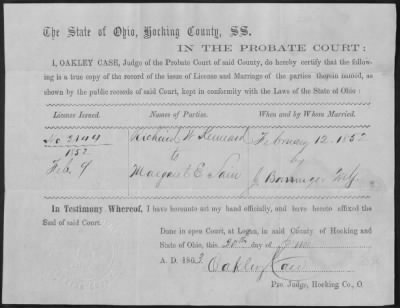 The State of Ohio, Hocking County, SS.
IN THE PROBATE COURT:
I, OAKLEY CASE, Judge of the Probate Court of said County, do hereby certify that the follow-
ing is a true copy of the record of the issue of License and Marriage of the parties therein named, as
shown by the public records of said Court, kept in conformity with the Laws of the State of Ohio:
License Issued. Names of Parties. When and by Whom Married.
No 2194 Richard W February 12. 1852
1852 to by
Feb. 9 Margaret E. J.
In Testimony Whereof, I have hereunto set my hand officially, and have hereto affixed the
Seal of said Court.
Done in open Court, at Logan, in said County of Hocking and
State of Ohio, this day of
A. D. 1863 Oakley Case
Pro. Judge, Hocking Co., O.